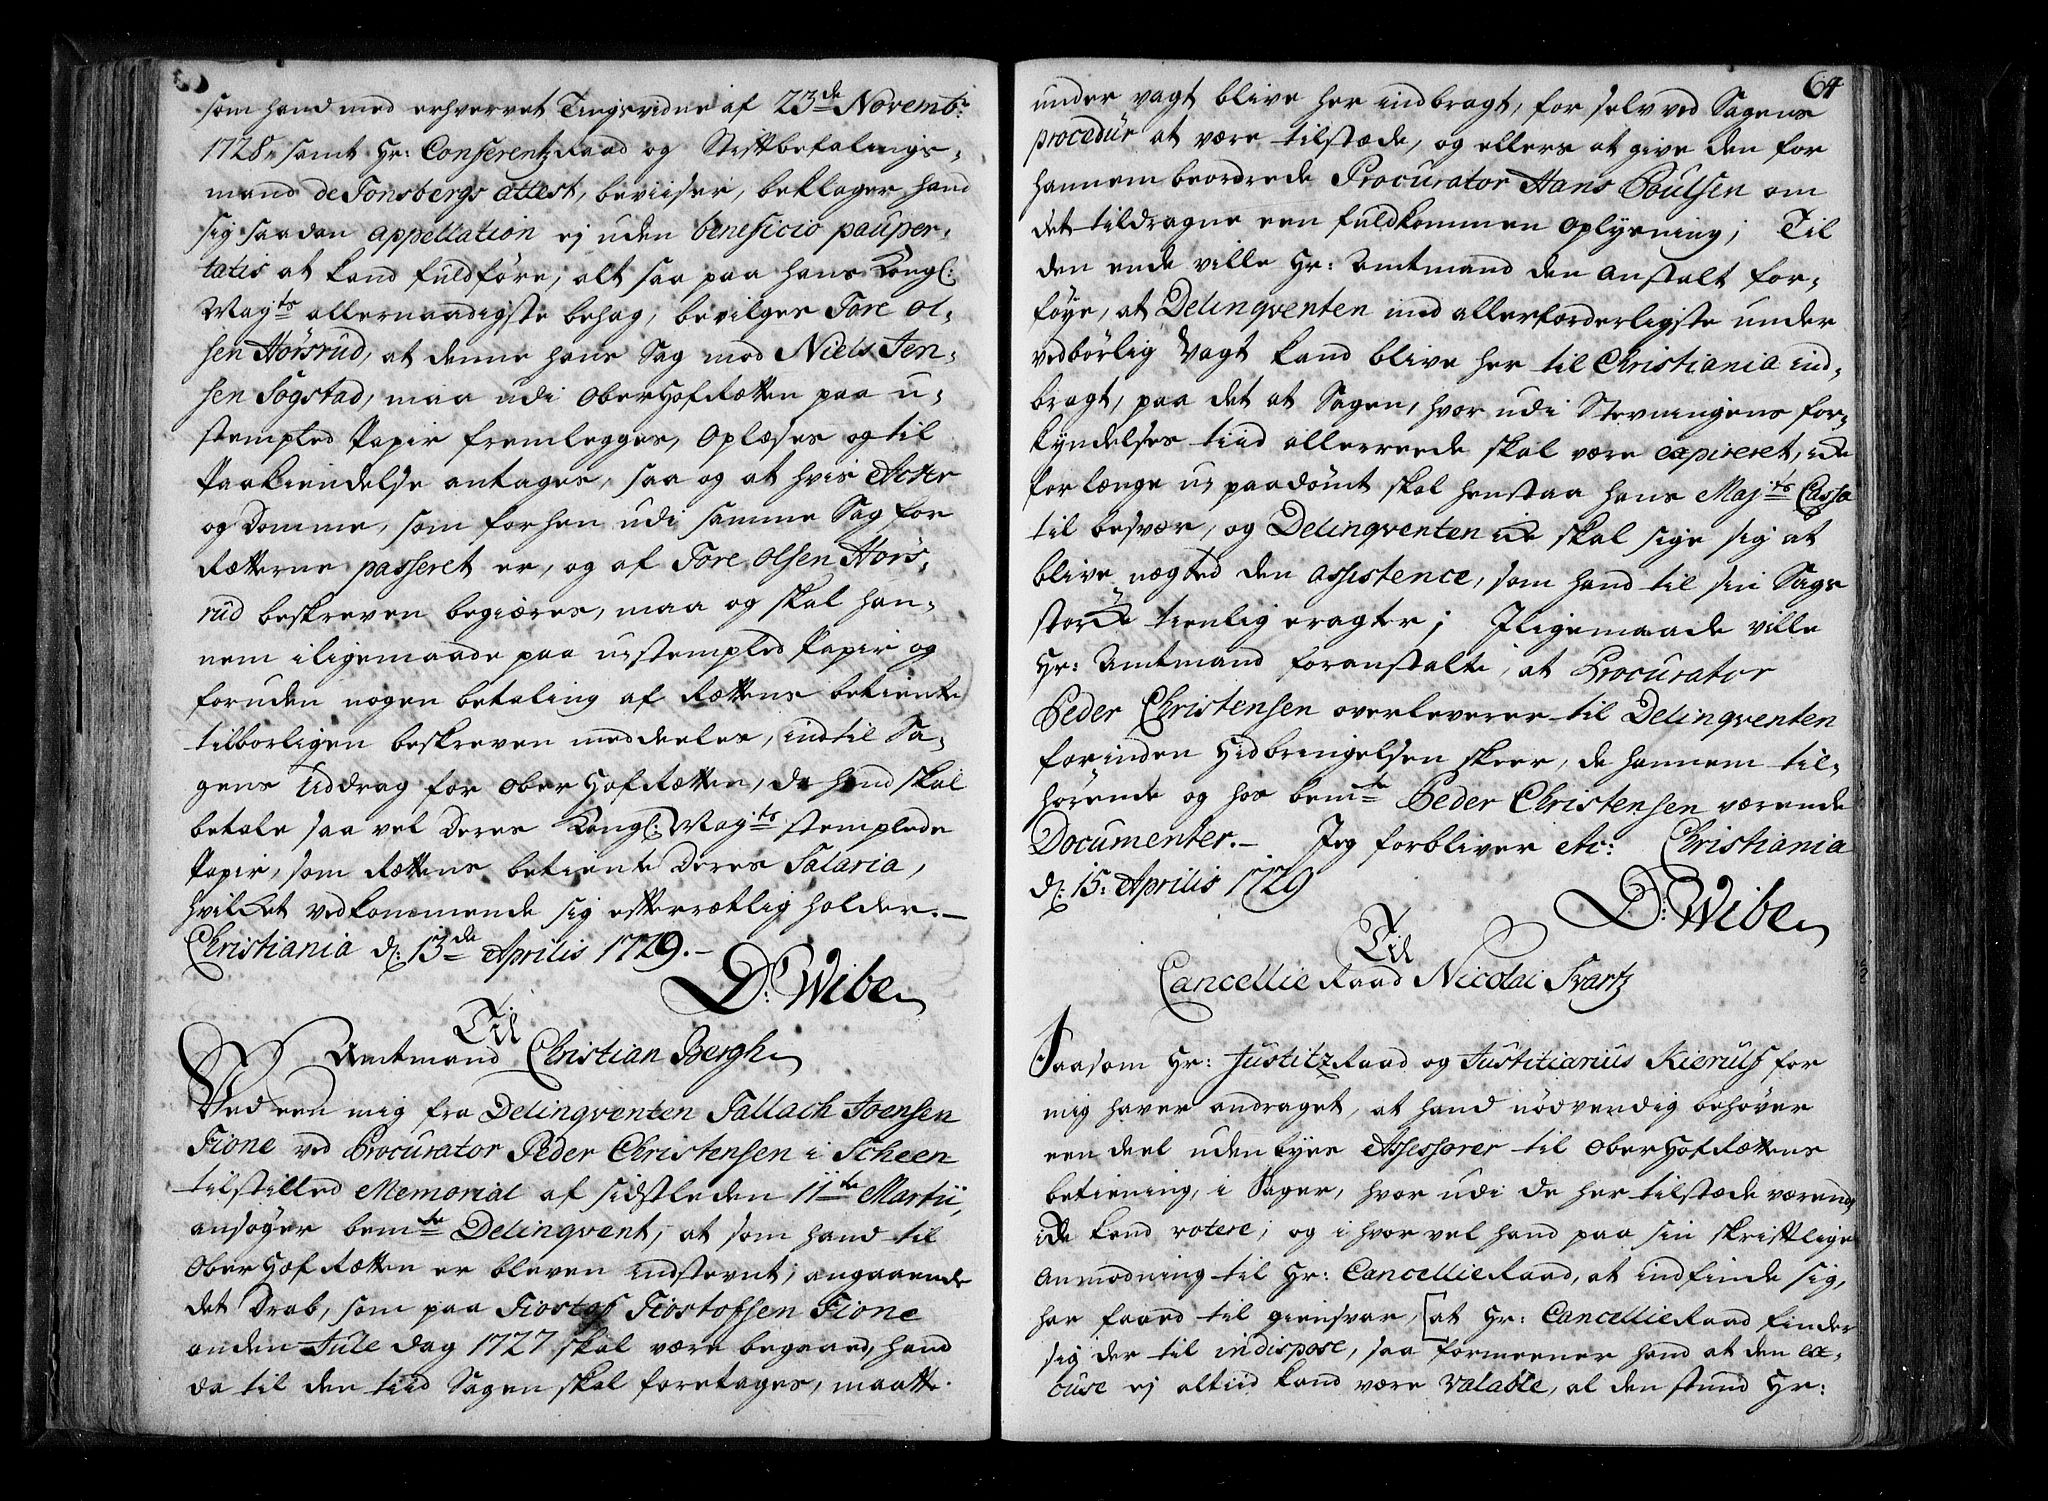 som hand med erhvervet Tingsvidne af 23de Novembr:
1728, samt Hr: ConferentzRaad og Stiftbefalings-
mand de Tonsbergs attest, beviiser, beklager hand
sig saadan appellation ej uden beneficio pauper-
tatis at kand fuldføre, alt saa paa hans Kongl:
Mayts allernaadigste behag, bevilges Tore Ol-
sen Hörsrud, at denne hans Sag mod Niels Jen-
sen Sogstad, maa udi OberHofRetten paa u-
stempled Papir fremlegges, Oplæses og til
Paakiendelse antages, saa og at hvis Acter
og Domme, som forhen udi samme Sag for
Rætterne passeret er, og af Tore Olsen Hörs-
rud beskreven begiæres, maa og skal han-
nem iligemaade paa ustempled Papir og
foruden nogen betaling af Rættens betiente
tilbørligen beskreven meddeeles, indtil Sa-
gens Uddrag for OberHofRætten, da hand skal
betale saa vel deres Kongl: Mayts stemplede
Papir, som Rættens betiente deres Salaria,
hvilket vedkommende sig efterrætlig holder.-
Christiania d: 13de Aprilis 1729.-
D: Wibe
Til
Amtmand Christian Bergh
Ved een mig fra Delinqventen Tallach Joensen
Fione ved Procurator Peder Christensen i Scheen
tilstilled Memorial af sidstleden 11te Martii,
ansøger bemte Delinqvent, at som hand til
OberHofRætten er bleven indstevnt, angaaende
det Drab, som paa Fiostof Fiostofsen Fione
anden Jule dag 1727 skal være begaaed, hand
da til den tiid Sagen skal foretages, maatte
64
under vagt blive her indbragt, for selv ved Sagens
procedür at være tilstæde, og ellers at give den for
hannem beordrede Procurator Hans Poulsen om
det tildragne een fuldkommen Oplysning; Til
den ende ville Hr: Amtmand den anstalt for-
føye, at Delinqventen med allerforderligste under
vedbörlig Vagt kand blive her til Christiania ind-
bragt, paa det at Sagen, hvor udi Stevningens for-
kyndelses tiid allerreede skal være expireret, icke
for længe upaadömt skal henstaa hans Majts Cassa
til besvær, og Delinqventen icke skal sige sig at
blive nægted den assistence, som hand til sin Sags
storcke tienlig eragter; Iligemaade ville
Hr: Amtmand foranstalte, at Procurator
Peder Christensen overleverer til Delinqventen
forinden Hidbringelsen skeer, de hannem til-
hörende og hos bemte Peder Christensen værende
Documenter.- Jeg forbliver etc: Christiania
d: 15: Aprilis 1729
D: Wibe
Til
CancellieRaad Nicolai Svartz
Saasom Hr: JustitzRaad og Justitiarius Kierulf for
mig haver andraget, at hand nödvendig behöver
een deel uden byes Assessorer til OberHofRættens
betiening, i Sager, hvor udi de her tilstæde værende
icke kand votere; og i hvor vel hand paa sin skriftlige
Anmodning til Hr: CancellieRaad, at indfinde sig,
har faaed til giensvar, [at Hr: CancellieRaad finder
sig der til indispose, saa formeener hand at den ex-
cuse ej altiid kand være valable, al den stund Hr: